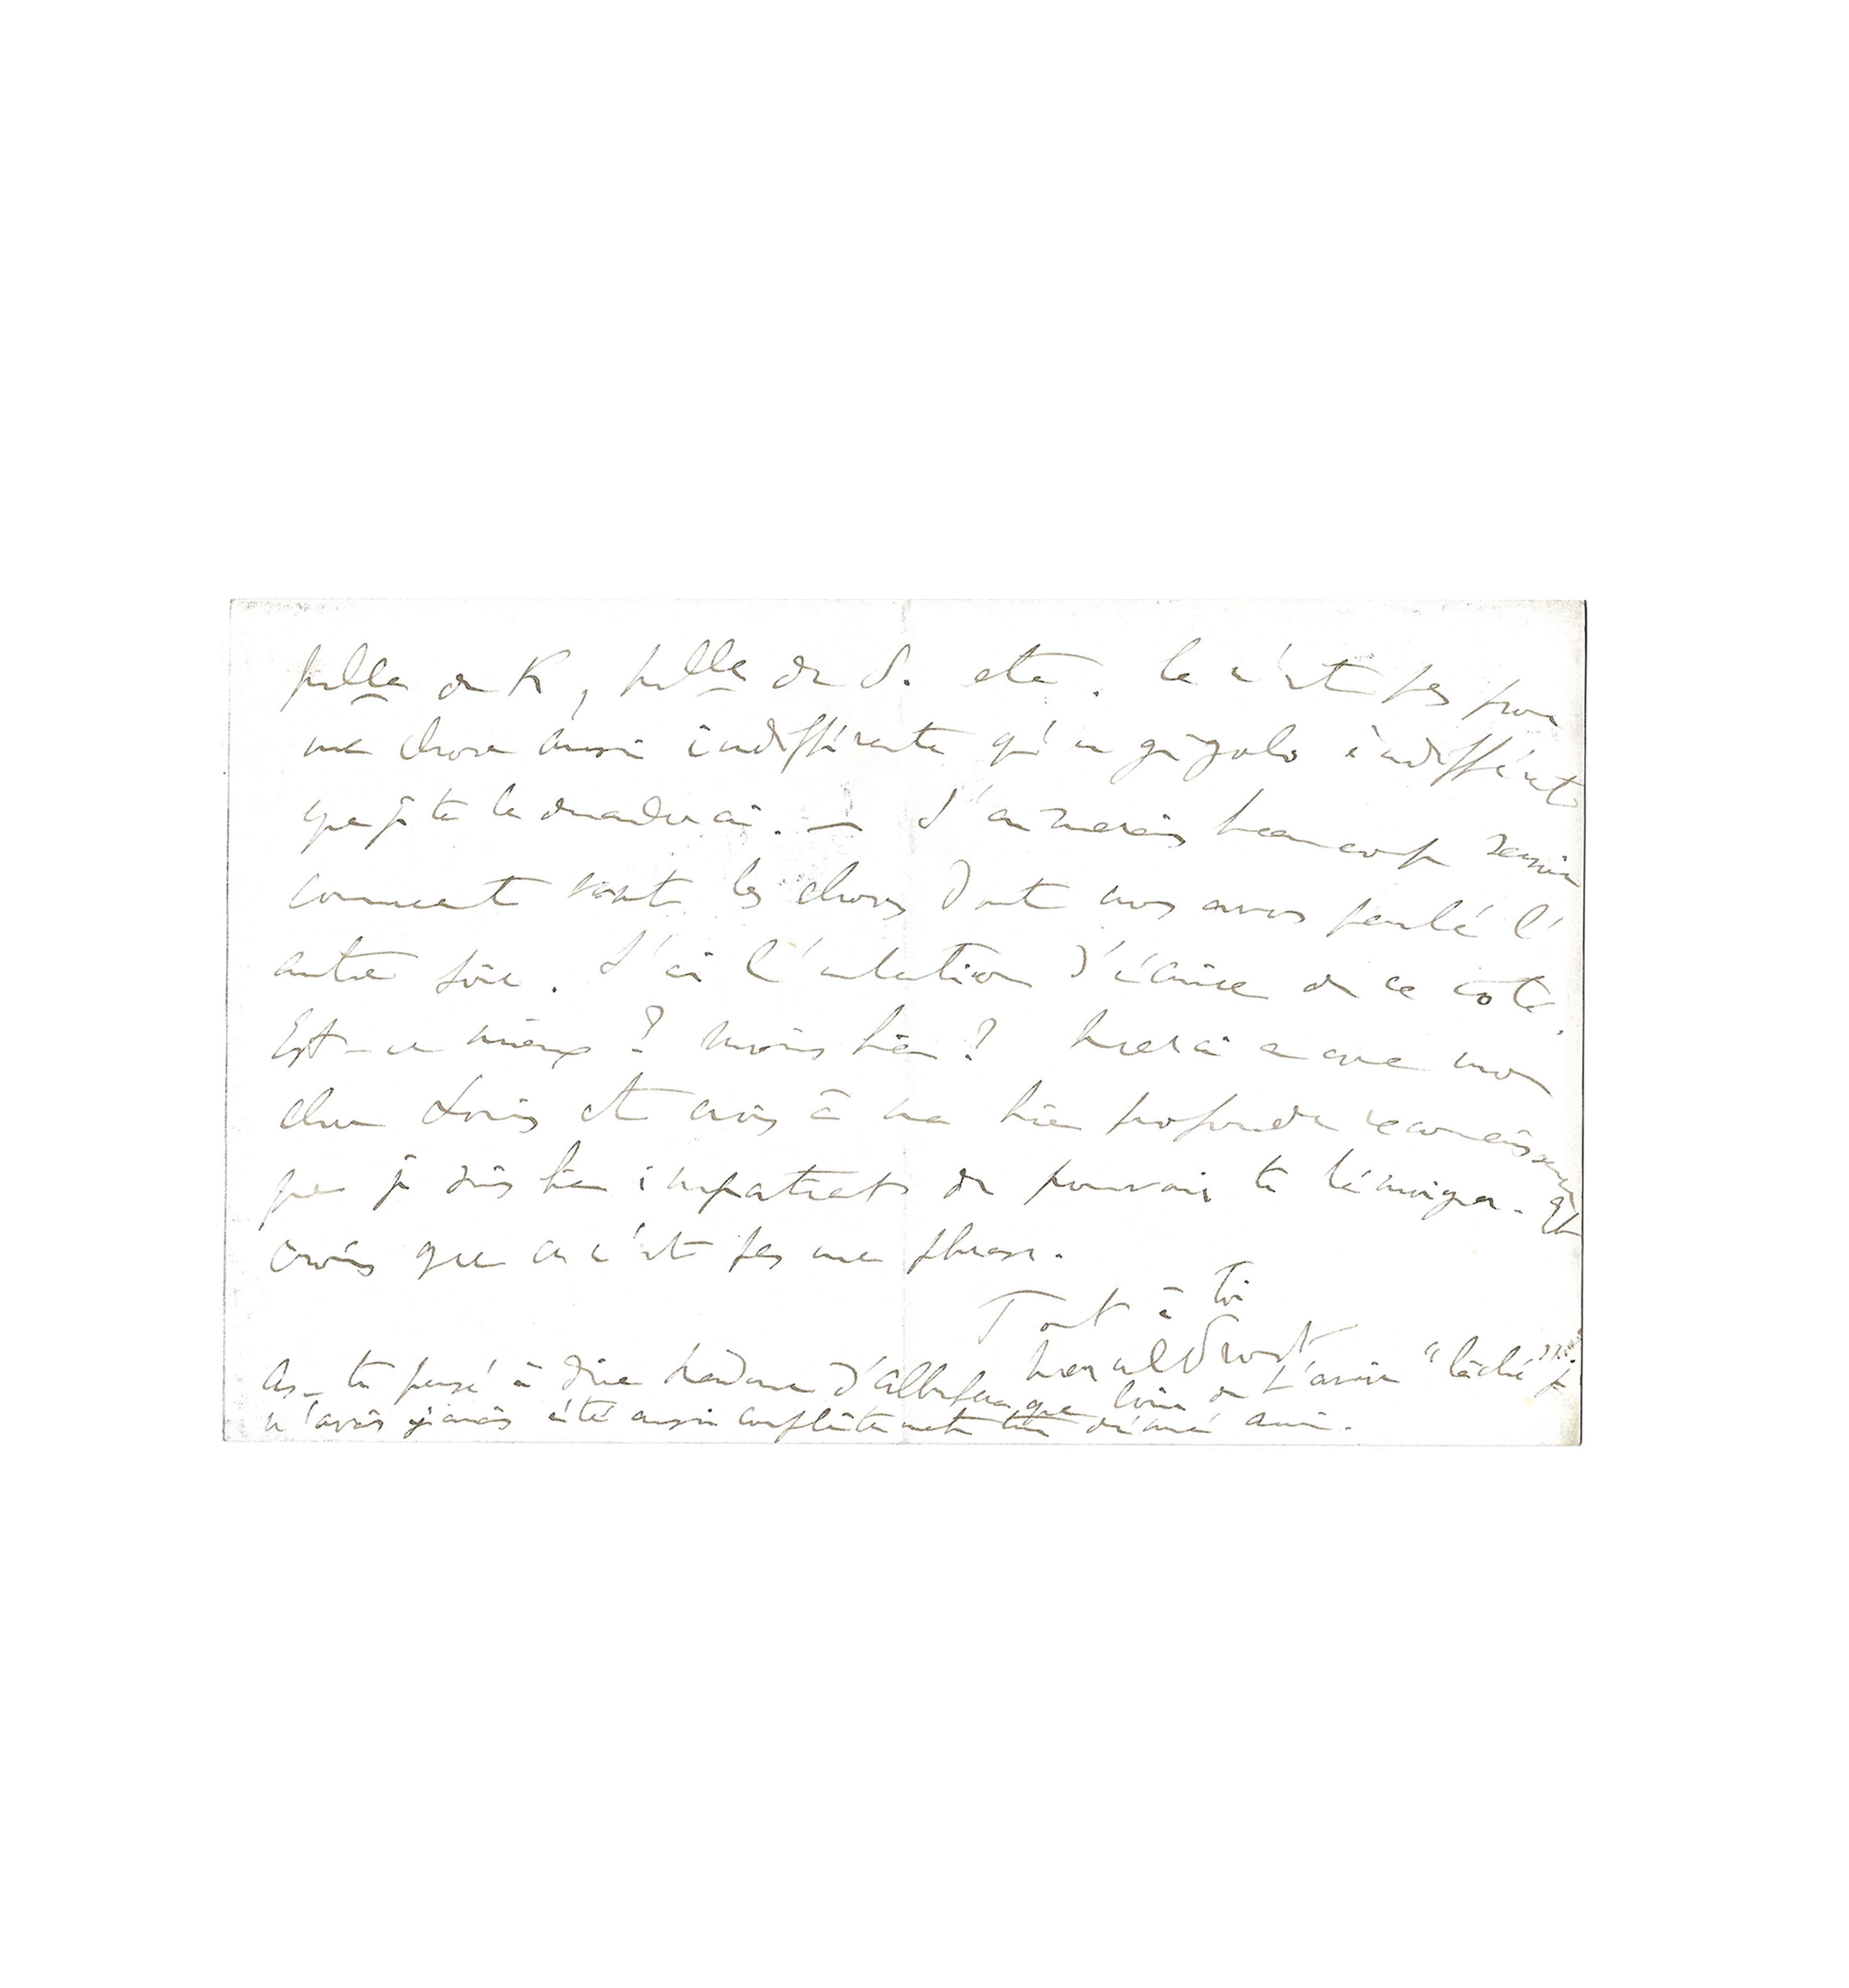 fille de K, fille de S. etc. Ce n'est pas pour
une chose aussi indifférente qu'un gigolo indifférent
que je te le demanderai. — J'aimerais beaucoup savoir
comment vont les choses dont nous avons parlé l'
autre soir. J'ai l'intention d'écrire de ce côté.
Est-ce mieux ? Moins bien ? Merci encore mon
cher Louis et crois à ma bien profonde reconnaissance
que je suis bien impatient de pouvoir te témoigner. Et
crois que ce n'est pas une phrase.
Tout à toi
Marcel Proust
As-tu pensé à dire à Madame d'Albufera que loin de t'avoir "lâché" je
n'avais jamais été aussi complètement ton dévoué ami.